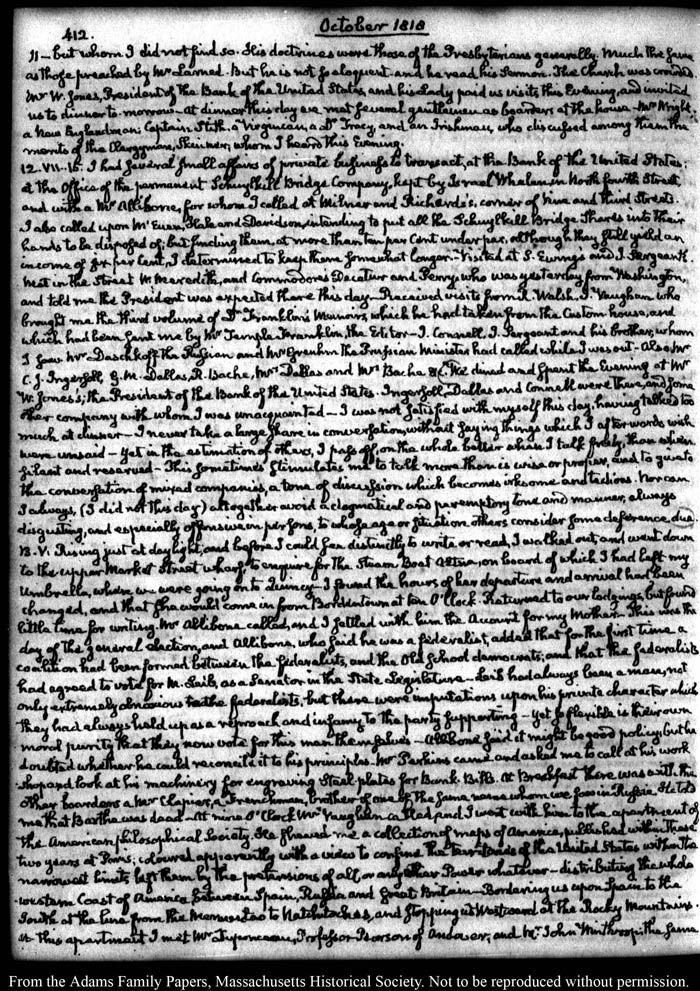 412.
October 1818
11 – but whom I did not find so. His doctrines were those of the Presbyterians generally. Much the same
as those preached by Mr Larned. But he is not so eloquent and he read his Sermon. The Church was crowded
Mr W. Jones, President of the Bank of the United States, and his Lady paid us visits this Evening, and invited
us to dinner to-morrow – at dinner this day we met several gentlemen as boarders at the house – Mr Wright
a New Englandman; Captain Stith, a Virginian, a Dr Tracy, and an Irishman, who discussed among them the
merits of the Clergyman, Skinner, whom I heard this Evening.
12. VII. 15. I had several small affairs of private business to transact, at the Bank of the United States;
at the Office of the permanent Schuylkill Bridge Company, kept by Israel Whalen in North fourth Street,
and with a Mr Allibone, for whom I called at Milner and Richards's, corner of Vine and third Streets.
I also called upon McEuen, Hale and Davidson, intending to put all the Schuylkill Bridge Shares into their
hands to be disposed of; but finding them, at more than ten per Cent under par, although they still yield an
income of six per Cent, I determined to keep them somewhat longer – Visited at S. Ewings and J. Sergeant's.
Met in the Street W. Meredith, and Commodores Decatur and Perry, who was yesterday from Washington,
and told me the President was expected there this day – Received visits from R. Walsh, J. Vaughan who
brought me the third volume of Dr Franklin's Memoirs, which he had taken from the Custom house, and
which had been sent me by Mr Temple Franklin, the Editor – J. Connell, J. Sergeant and his brother, whom
I saw. Mr Daschkoff the Russian and Mr Greuhm the Prussian Minister had called while I was out – Also Mr
C. J. Ingersoll, G. M. Dallas, R. Bache, Mrs Dallas and Mrs Bache &c. We dined and spent the Evening at Mr
W. Jones's; the President of the Bank of the United States. Ingersoll, Dallas and Connell were there, and some
other company with whom I was unacquainted – I was not satisfied with myself this day, having talked too
much at dinner – I never take a large share in conversation, without saying things which I afterwards wish
were unsaid – Yet in the estimation of others, I pass off, on the whole better when I talk freely, than when
silent and reserved – This sometimes stimulates me to talk more than is wise or proper, and to give to
the conversation of mixed companies, a tone of discussion which becomes irksome and tedious. Nor can
I always, (I did not this day) altogether avoid a dogmatical and peremptory tone and manner, always
disgusting, and especially offensive in persons, to whose age or situation others consider some deference due.
13. V. Rising just at daylight, and before I could see distinctly to write or read, I walked out, and went down
to the upper Market Street wharf to enquire for the Steam Boat Aetna, on board of which I had left my
Umbrella, when we were going on to Quincy – I found the hours of her departure and arrival had been
changed, and that she would come in from Bordentown at ten O'Clock. I returned to our lodgings, but found
little time for writing. Mr Allibone called, and I settled with him the Account for my Mother – This was the
day of the general election, and Allibone, who said he was a federalist, added that for the first time a
coalition had been formed between the federalists, and the Old School democrats; and that the federalists
had agreed to vote for M. Leib, as a Senator in the State Legislature – Leib had always been a man, not
only extremely obnoxious to the federalists, but there were imputations upon his private character which
they had always held up as a reproach and infamy to the party supporting – yet so flexible is their own
moral purity that they now vote for this man themselves – Allibone said it might be good policy, but he
doubted whether he could reconcile it to his principles. Mr Perkins came and asked me to call at his work
shop and look at his machinery for engraving Steel plates for Bank Bills. At Breakfast there was with the
other boarders a Mr Clapier, a Frenchman, brother of one of the same name whom we saw in Russia. He told
me that Barthe was dead – At nine O'Clock Mr Vaughan called, and I went with him to the apartment of
the American philosophical Society. He shewed me a collection of maps of America, published within these
two years at Paris; coloured apparently with a view to confine the territories of the United States within the
narrowest limits left them by the pretensions of all, or any other Power whatever – distributing the whole
western Coast of America between Spain, Russia and Great Britain – Bordering us upon Spain to the
South at the line from the Mermentao to Natchitoches, and stopping us Westward at the Rocky Mountains.
At this apartment I met Mr Duponceau, Professor Pearson of Andover, and Mr John Winthrop: the same
From the Adams Family Papers, Massachusetts Historical Society. Not to be reproduced without permission.